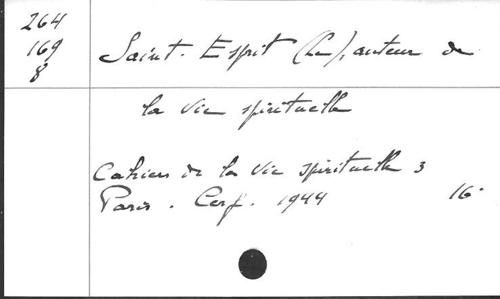 264
169
8
Saint-Esprit (Le), auteur de
la vie spirituelle
Cahiers de la vie spirituelle 3
Paris. Cerf. 1944 16°